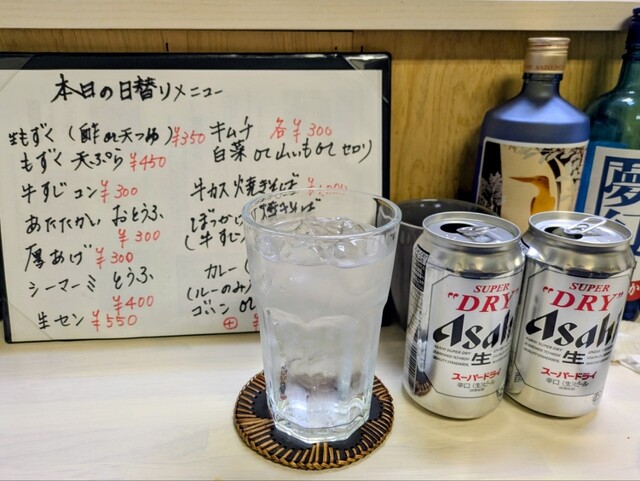 本日の日替りメニュー
生もずく(酢or天つゆ)¥350
もずく天ぷら ¥450
牛すじコン ¥300
あたたかい おとうふ
¥300
厚あげ ¥300
シーマーミ とうふ
¥400
生セン ¥550
キムチ 各¥300
白菜 or 山いも or セロリ
牛カス焼きそば
焼きそば
(牛すじ
カレー(
(ルーのみ)
ゴハン or
⊕ ¥
SUPER
"DRY"
Asahi
生
スーパードライ
辛口〈生〉ビール
SUPER
"DRY"
Asahi
生
スーパードライ
辛口〈生〉ビール
夢